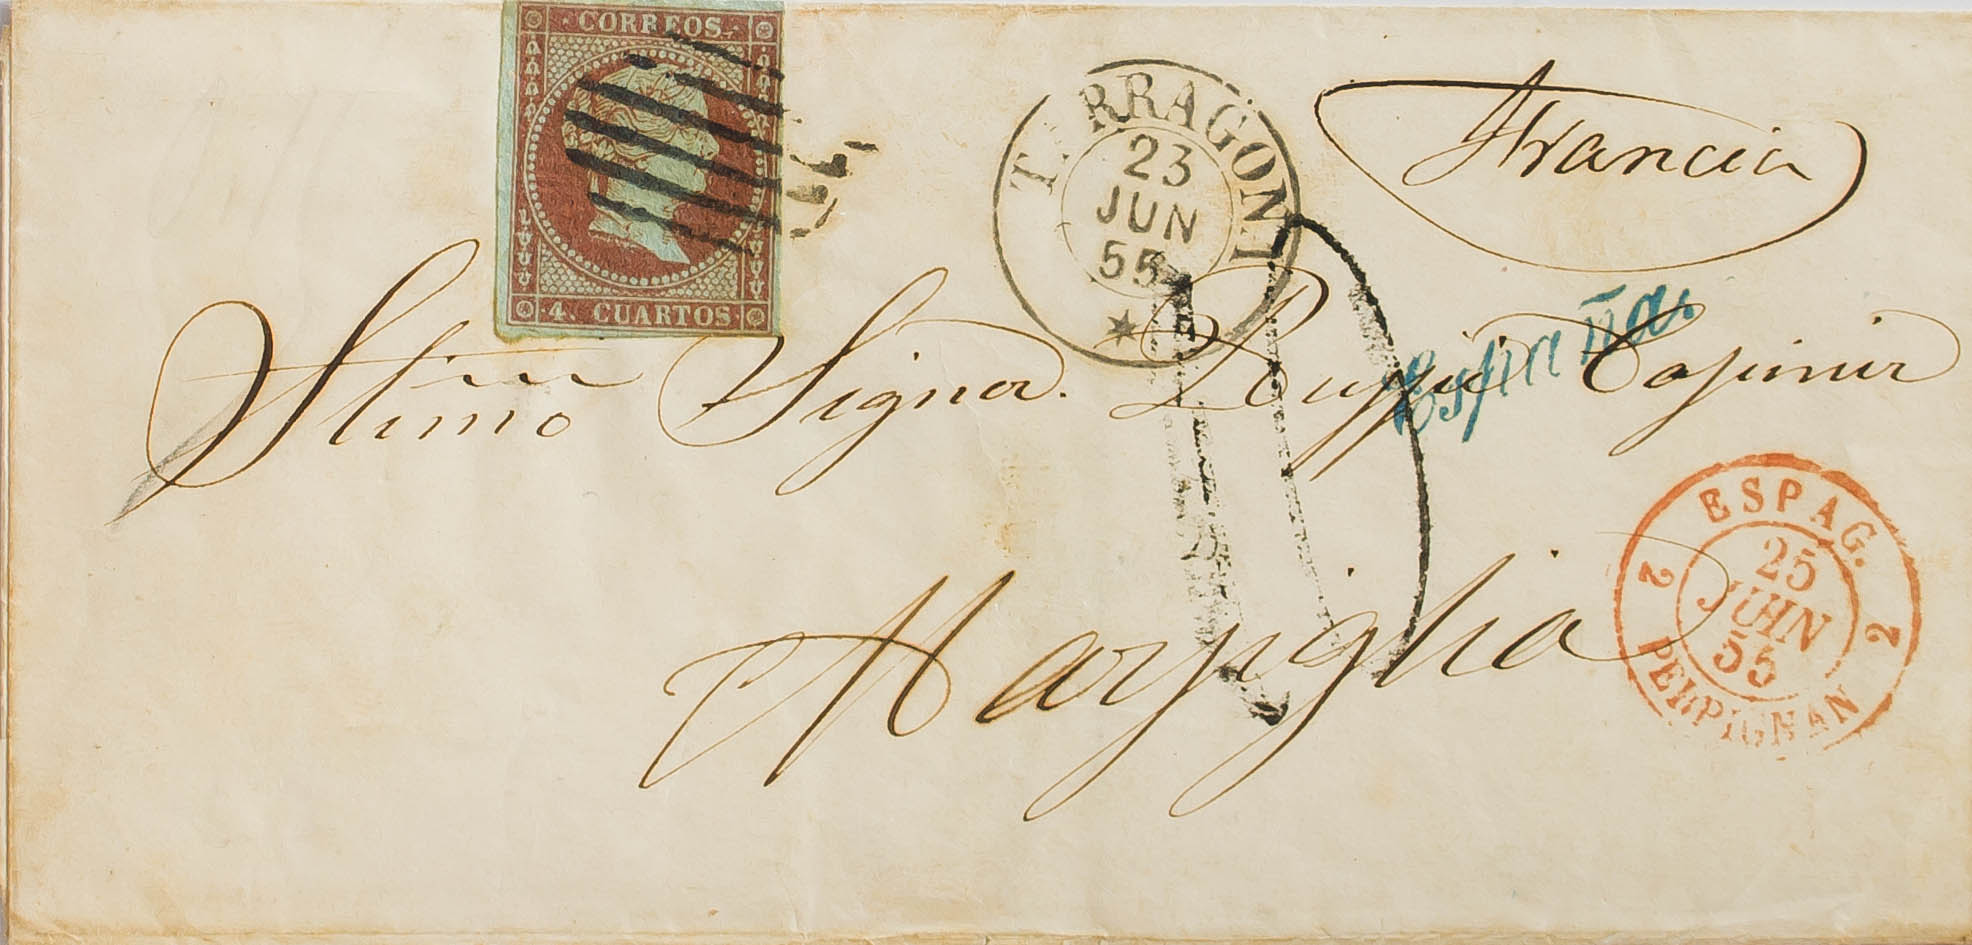 ·CORREOS·
·4· CUARTOS·
TARRAGONA
23
JUN
55
Francia
España.
Stimo Signor. Luiggi Casimir
Marsiglia
ESPAG.
25
JUIN
55
2 2
PERPIGNAN